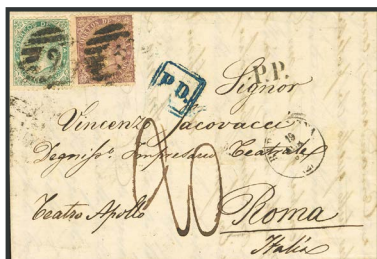 CORREOS DE
2
P.D.
P.P.
Signor
Vincenzo Jacovacci
Degniss.º Impresario Teatrale
20
Teatro Apollo
Roma
Italia